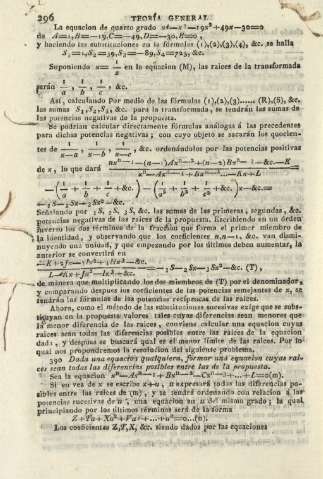 296 TEORÍA GENERAL
La equacion de quarto grado x⁴-x³-19x²+49x-30=0
da A=1, B=-19, C=-49, D=-30, E=0,
y haciendo las substituciones en las fórmulas (1),(2),(3),(4), &c. se halla
S₁=1, S₂=39, S₃=-89, S₄=723, &c.
Suponiendo x= 1/z en la equacion (M), las raices de la transformada
serán 1/a, 1/b, 1/c, &c.
Así, calculando por medio de las fórmulas (1),(2),(3)......(R),(S), &c,
las sumas S₁, S₂, S₃, &c. para la transformada, se tendrán las sumas de
las potencias negativas de la propuesta.
Se podrian calcular directamente fórmulas análogas á las precedentes
para dichas potencias negativas; con cuyo objeto se sacarán los quocien-
tes de 1/(x-a), 1/(x-b), 1/(x-c), &c. ordenándolos por las potencias positivas
de x, lo que dará
-(1/a + 1/b + 1/c + &c.) - (1/a² + 1/b² + 1/c² + &c.)x-&c.=
Señalando por ₁S, ₂S, ₃S, &c. las sumas de las primeras, segundas, &c.
potencias negativas de las raices de la propuesta. Escribiendo en un órden
inverso los dos términos de la fraccion que forma el primer miembro de
la identidad, y observando que los coeficientes n,n-1, &c. van dismi-
nuyendo una unidad, y que empezando por los últimos deben aumentar, la
anterior se convertirá en
=-₁S-₂Sx-₃Sx²-&c. (T),
de manera que multiplicando los dos miembros de (T) por el denominador,
y comparando despues los coeficientes de las potencias semejantes de x, se
tendrán las fórmulas de las potencias recíprocas de las raices.
Ahora, como el método de las substituciones sucesivas exige que se subs-
tituyan en la propuesta valores tales cuyas diferencias sean menores que
la menor diferencia de las raices, conviene calcular una equacion cuyas
raices sean todas las diferencias posibles entre las raices de la equacion
dada, y despues se buscará qual es el menor límite de las raices. Por lo
qual nos propondremos la resolucion del siguiente problema.
390 Dada una equacion qualquiera, formar una equacion cuyas rai-
ces sean todas las diferencias posibles entre las de la propuesta.
Si en vez de x se escribe x+u, u expresará todas las diferencias po-
sibles entre las raices de (m), y se tendrá ordenando con relacion á las
potencias sucesivas de u, una equacion en u del mismo grado; la qual
principiando por los últimos términos será de la forma
Los coeficientes Z,Y,X, &c. siendo dados por las equaciones